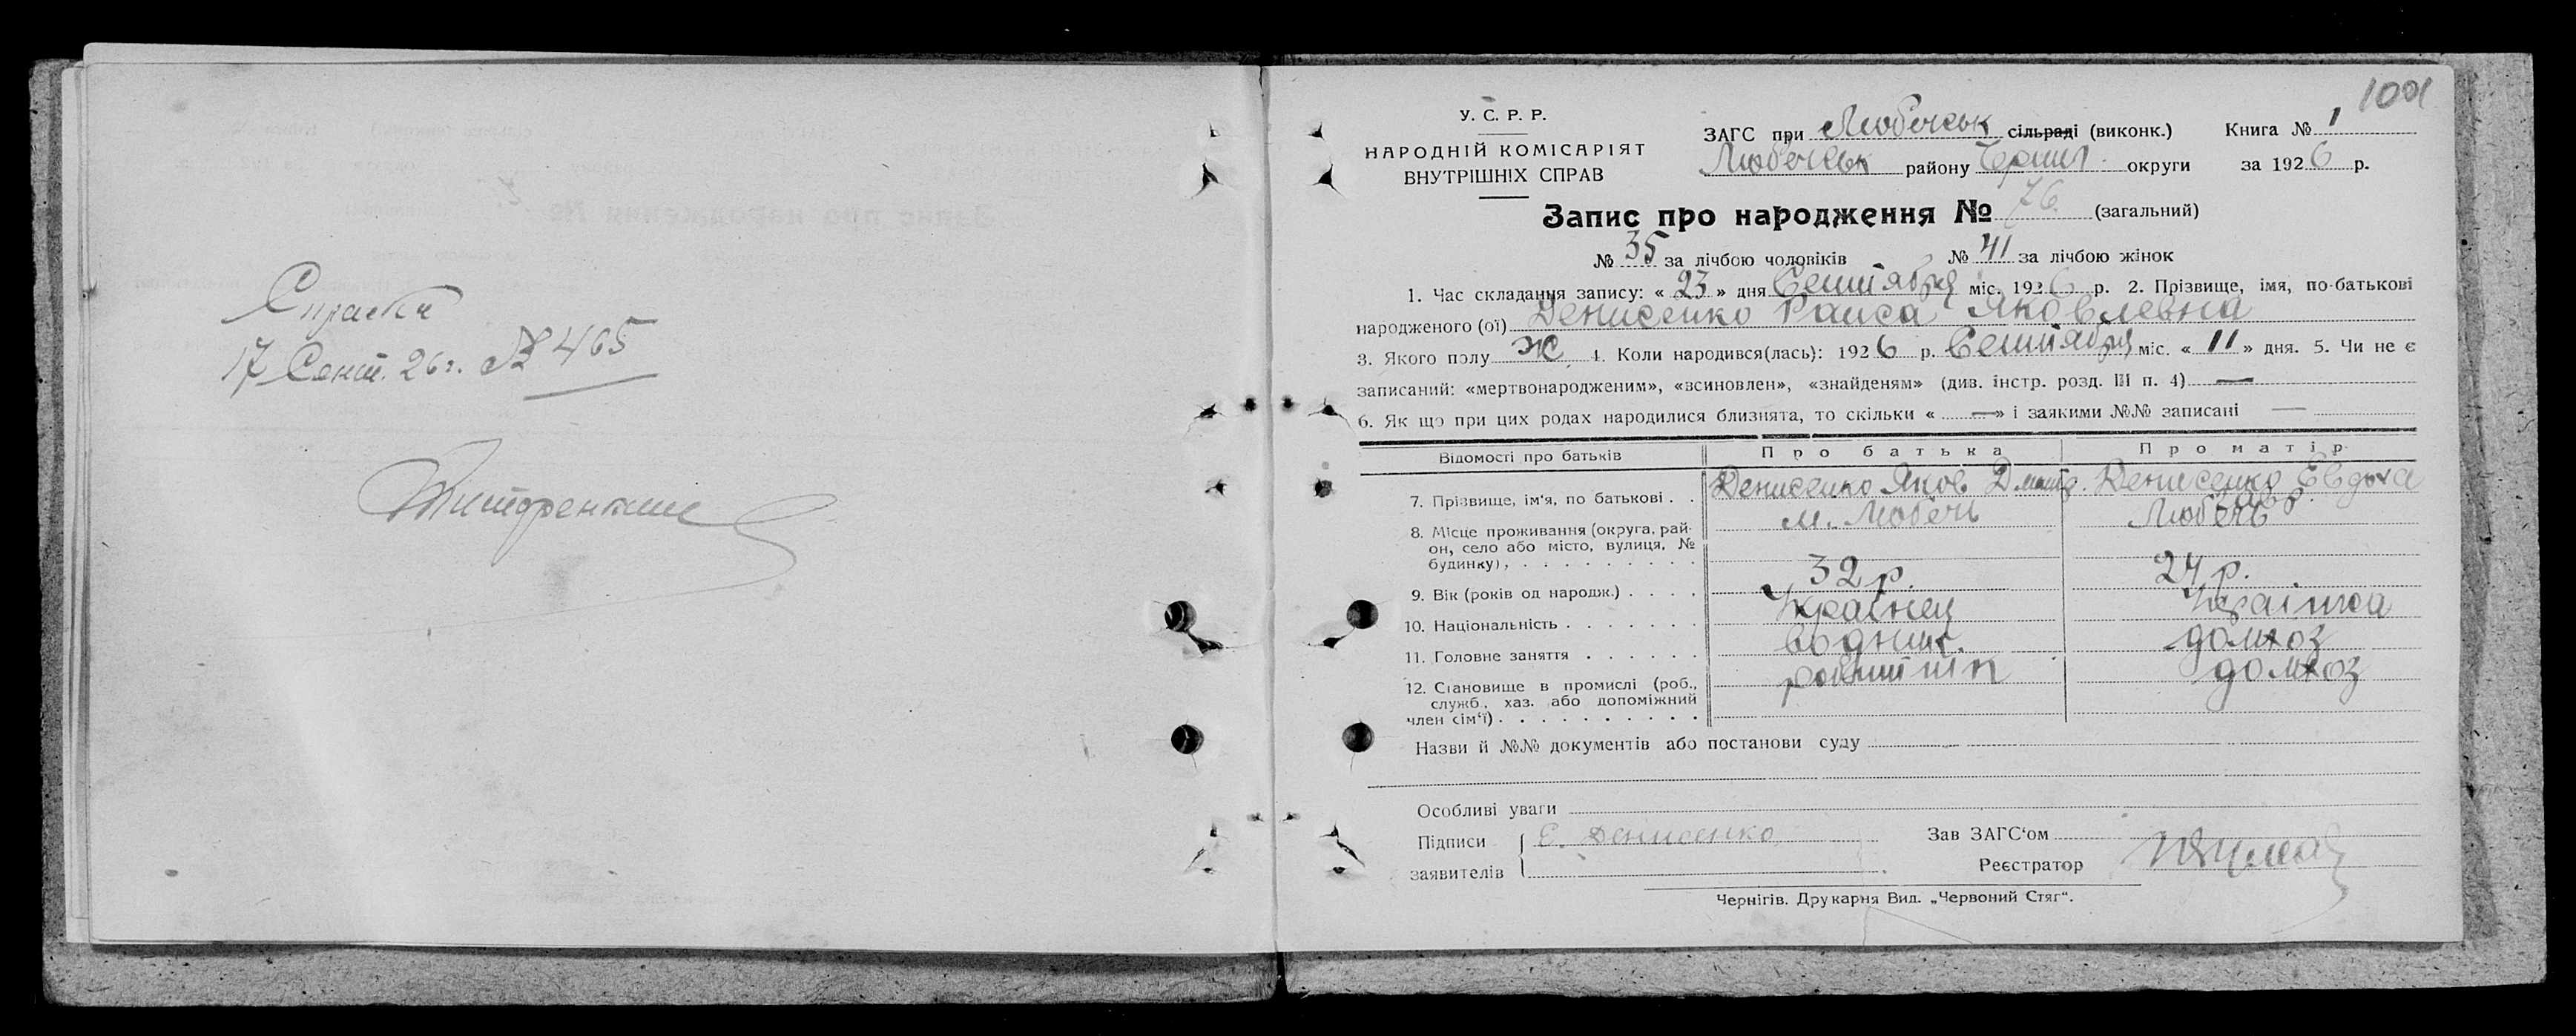 Справка
17 Сент. 26 г. № 465
1001
У. С. Р. Р.
НАРОДНІЙ КОМІСАРІЯТ
ВНУТРІШНІХ СПРАВ
ЗАГС при Любечськ сільраді (виконк.) Книга № 1
Любечськ району Черниг. округи за 1926 р.
Запис про народження № 76 (загальний)
№ 35 за лічбою чоловіків № 41 за лічбою жінок
1. Час складання запису: « 23 » дня Сентября міс. 1926 р. 2. Прізвище, імя, по-батькові
народженого (ої) Денисенко Раиса Яковлевна
3. Якого полу Ж 4. Коли народився(лась): 1926 р. Сентября міс. « 11 » дня. 5. Чи не є
записаний: «мертвонародженим», «всиновлен», «знайденям» (див. інстр. розд. III п. 4) —
6. Як що при цих родах народилися близнята, то скільки « — » і заякими №№ записані —
Відомості про батьків Про батька Про матір
7. Прізвище, ім'я, по батькові . . Денисенко Яков Дмитр. Денисенко Евдоха
8. Місце проживання (округа, рай- м. Любечь Любечь
он, село або місто, вулиця, №
будинку), . . . . . . . . . .
9. Вік (років од народж.) . . . . 32 р. 24 р.
10. Національність . . . . . . . Українец Українка
11. Головне заняття . . . . . . водник. домхоз
12. Становище в промислі (роб., робитник домхоз
служб., хаз. або допоміжний
член сім'ї) . . . . . . . . . .
Назви й №№ документів або постанови суду
Особливі уваги
Підписи Е. Денисенко Зав ЗАГС'ом
заявителів Реєстратор
Чернігів. Друкарня Вид. „Червоний Стяг“.